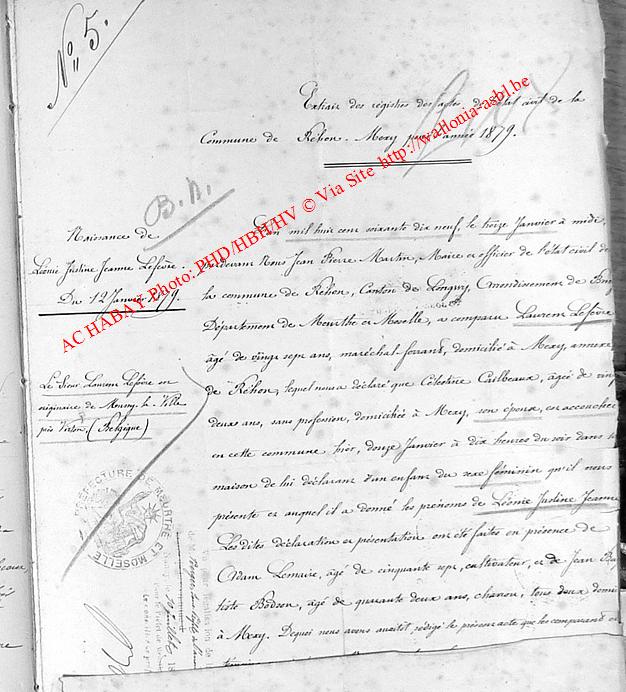 N° 5.
Extrait des registres des actes de l'état civil de la
Commune de Réhon-Mexy pour l'année 1879.
AC HABAY Photo: PHD/HBH/HV © Via Site http://wallonia-asbl.be
B.N.
Naissance de
Léonie Justine Jeanne Lefèvre
Du 12 Janvier 1879.
Le Sieur Laurent Lefèvre est
originaire de Musny-la-Ville
près Virton, (Belgique)
PRÉFECTURE DE MEURTHE ET MOSELLE
L'an mil huit cent soixante dix neuf, le treize Janvier à midi,
Pardevant Nous Jean Pierre Martin, Maire et officier de l'état civil de
la commune de Réhon, Canton de Longwy, Arrondissement de
Département de Meurthe et Moselle, a comparu Laurent Lefèvre
âgé de vingt sept ans, maréchal-ferrant, domicilié à Mexy, annexe
de Réhon, lequel nous a déclaré que Célestine Cailbeaux, âgée de vingt
deux ans, sans profession, domiciliée à Mexy, son épouse, est accouchée
en cette commune hier, douze Janvier à dix heures du soir dans
maison de lui déclarant d'un enfant du sexe féminin qu'il nous
présente et auquel il a donné les prénoms de Léonie Justine Jeanne
Les dites déclaration et présentation ont été faites en présence de
Adam Lemaire, âgé de cinquante sept, cultivateur, et de Jean Bap
tiste Bodson, âgé de quarante deux ans, charron, tous deux domi
à Mexy. Dequoi nous avons aussitôt rédigé le présent acte que les comparant et